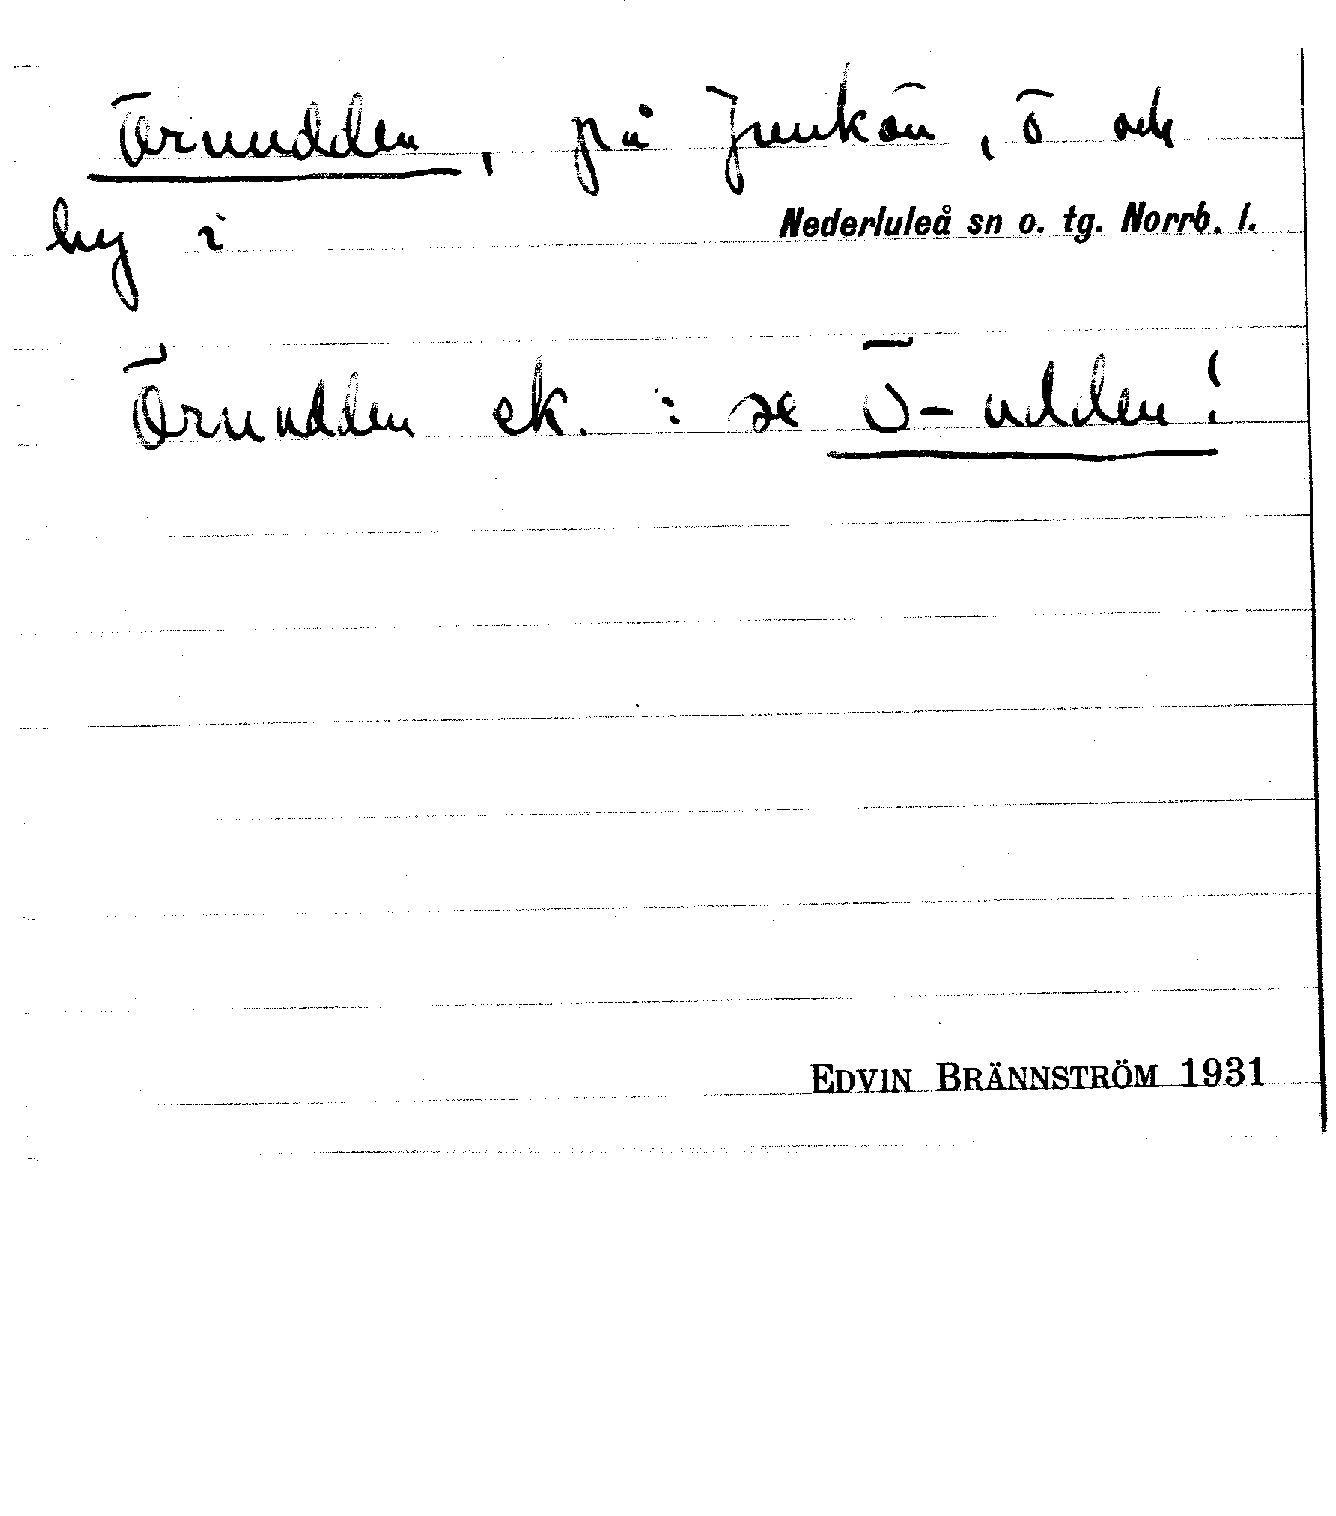 Örnudden, på Junkön, ö och
by i Nederluleå sn o. tg. Norrb. l.
Örnudden ek. : se Ö-udden!
EDVIN BRÄNNSTRÖM 1931